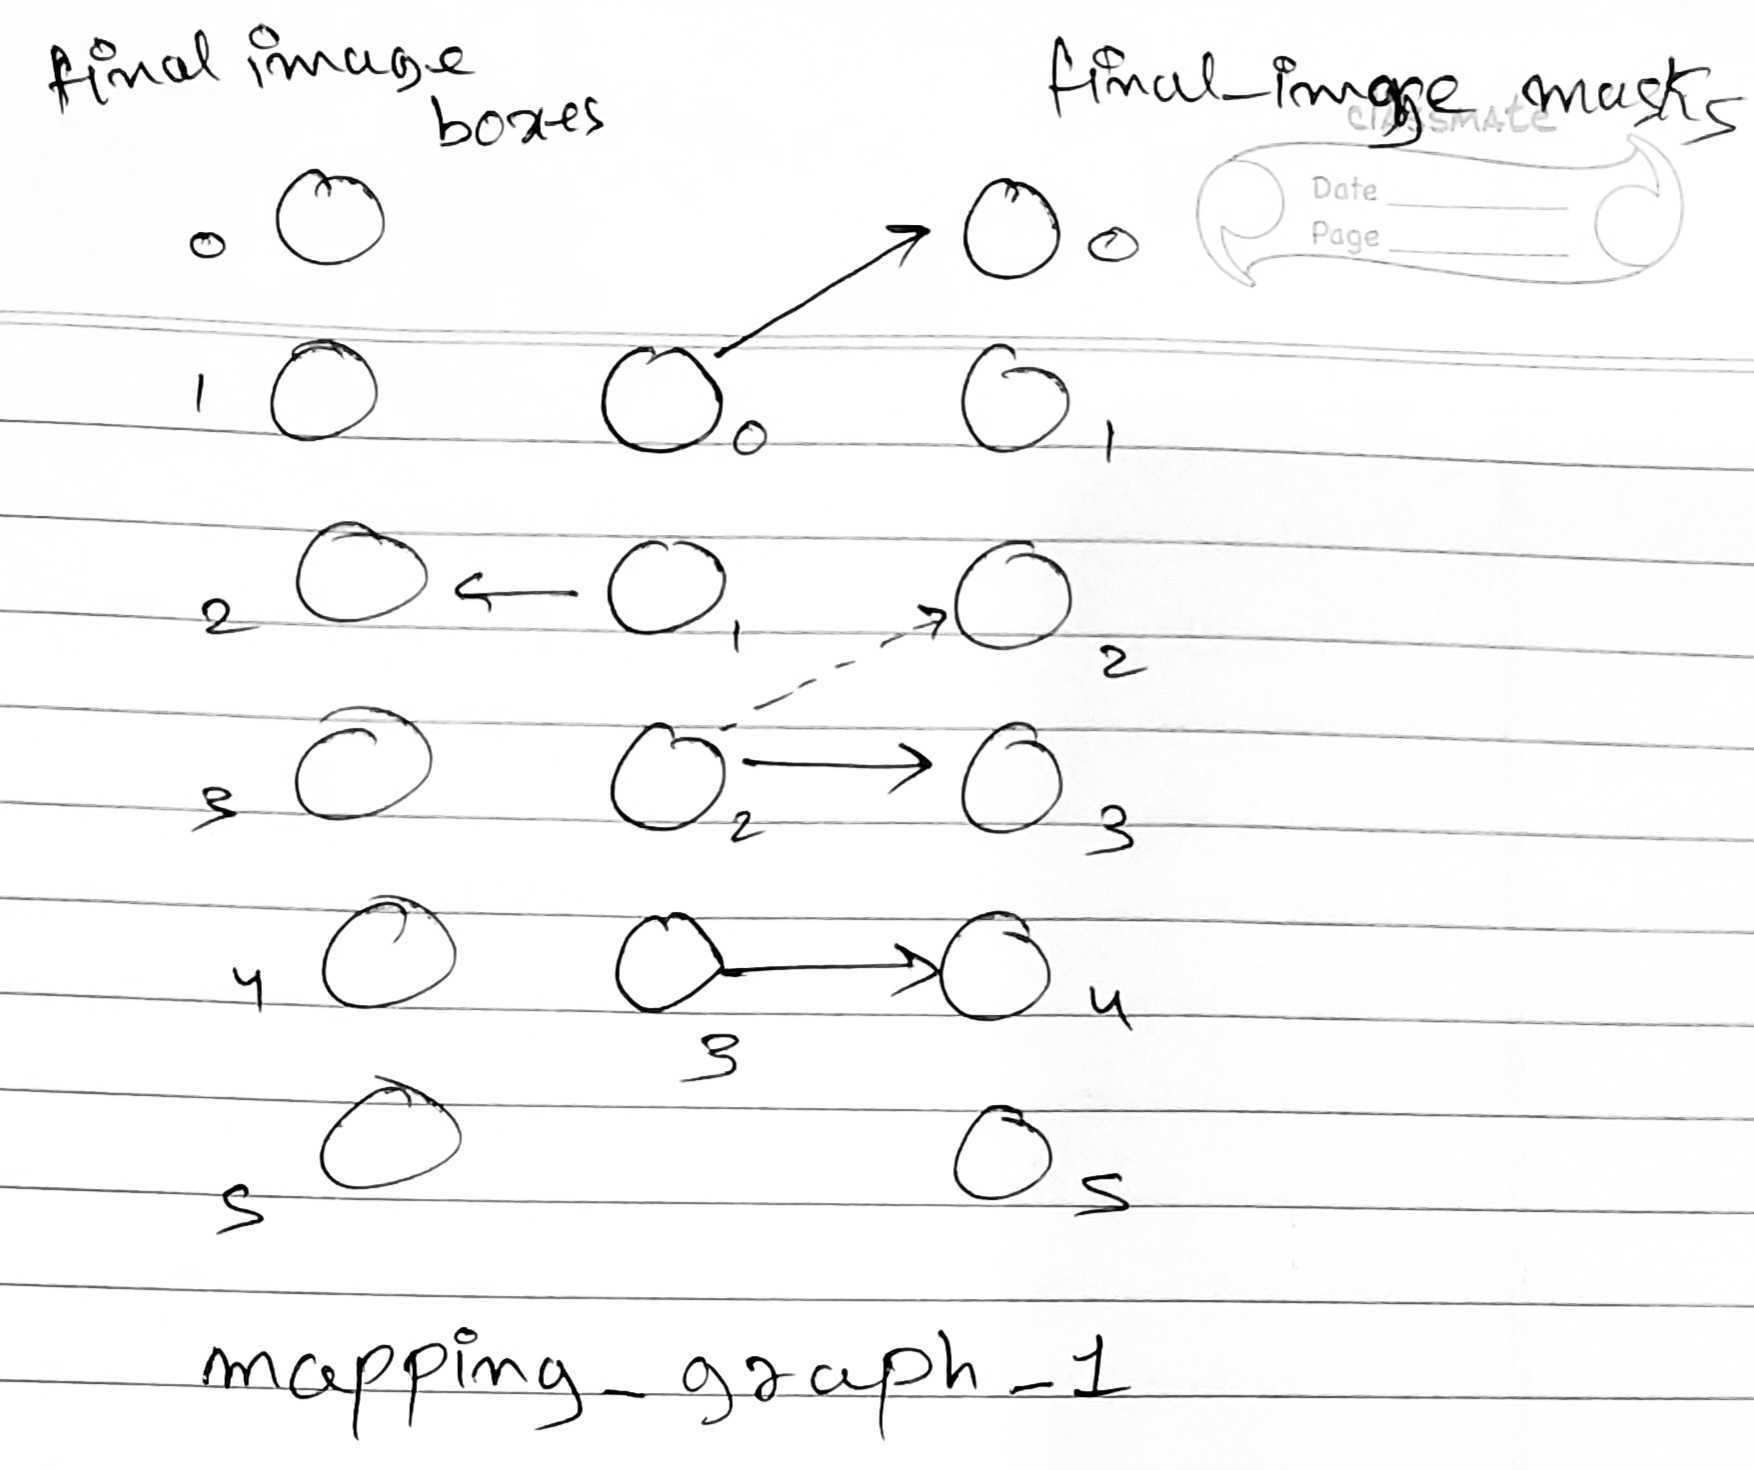 final image
boxes
final_image masks
classmate
Date
Page
0
0
1
0
1
2
1
2
3
2
3
4
3
4
5
5
mapping_graph_1